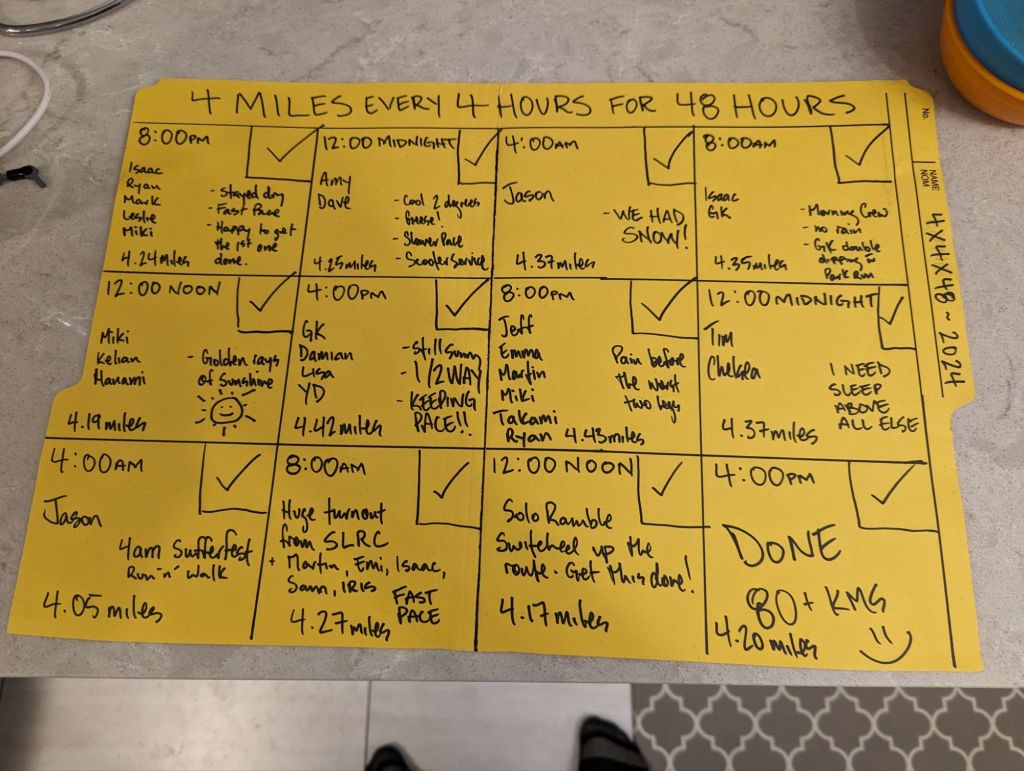 4 MILES EVERY 4 HOURS FOR 48 HOURS
8:00PM
Isaac
Ryan
Mark
Leslie
Miki
- Stayed dry
- Fast Pace
- Happy to get
the 1st one
done.
4.24 miles
12:00 MIDNIGHT
Amy
Dave
- Cool 2 degrees
- Breeze!
- Slower Pace
- Scooter Service
4.25 miles
4:00AM
Jason
- WE HAD
SNOW!
4.37 miles
8:00AM
Isaac
GK
- Morning Crew
- no rain
- GK double
dipping w
Park Run
4.35 miles
12:00 NOON
Miki
Kelian
Manami
- Golden rays
of Sunshine
4.19 miles
4:00PM
GK
Damian
Lisa
YD
- Still Sunny
- 1/2 WAY
- KEEPING
PACE!!
4.42 miles
8:00PM
Jeff
Emma
Martin
Miki
Takami
Ryan
Pain before
the worst
two legs
4.43 miles
12:00 MIDNIGHT
Tim
Chelsea
I NEED
SLEEP
ABOVE
ALL ELSE
4.37 miles
4:00AM
Jason
4am Sufferfest
Run 'n' Walk
4.05 miles
8:00AM
Huge turnout
from SLRC
+ Martin, Emi, Isaac,
Sam, IRIS
FAST
PACE
4.27 miles
12:00 NOON
Solo Ramble
Switched up the
route. Get this done!
4.17 miles
4:00PM
DONE
80+ KMS
4.20 miles
No.
NAME
NOM
4X4X48 ~ 2024